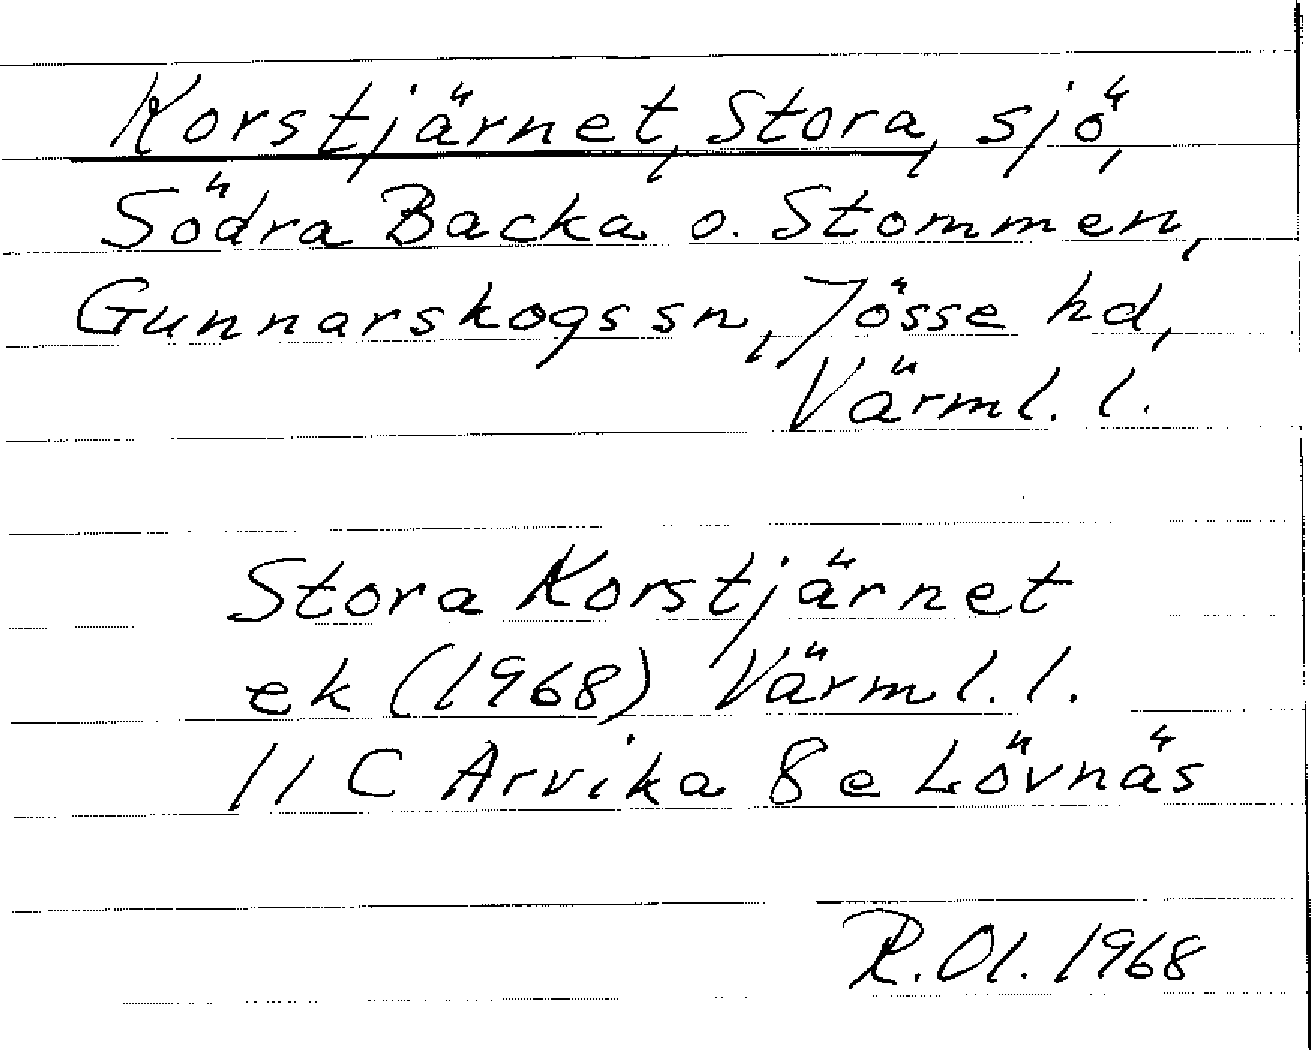 Korstjärnet, Stora, sjö,
Södra Backa o. Stommen,
Gunnarskogs sn, Jösse hd,
Värml. l.
Stora Korstjärnet
ek (1968) Värml. l.
11 C Arvika 8 e Lövnäs
R. Ol. 1968